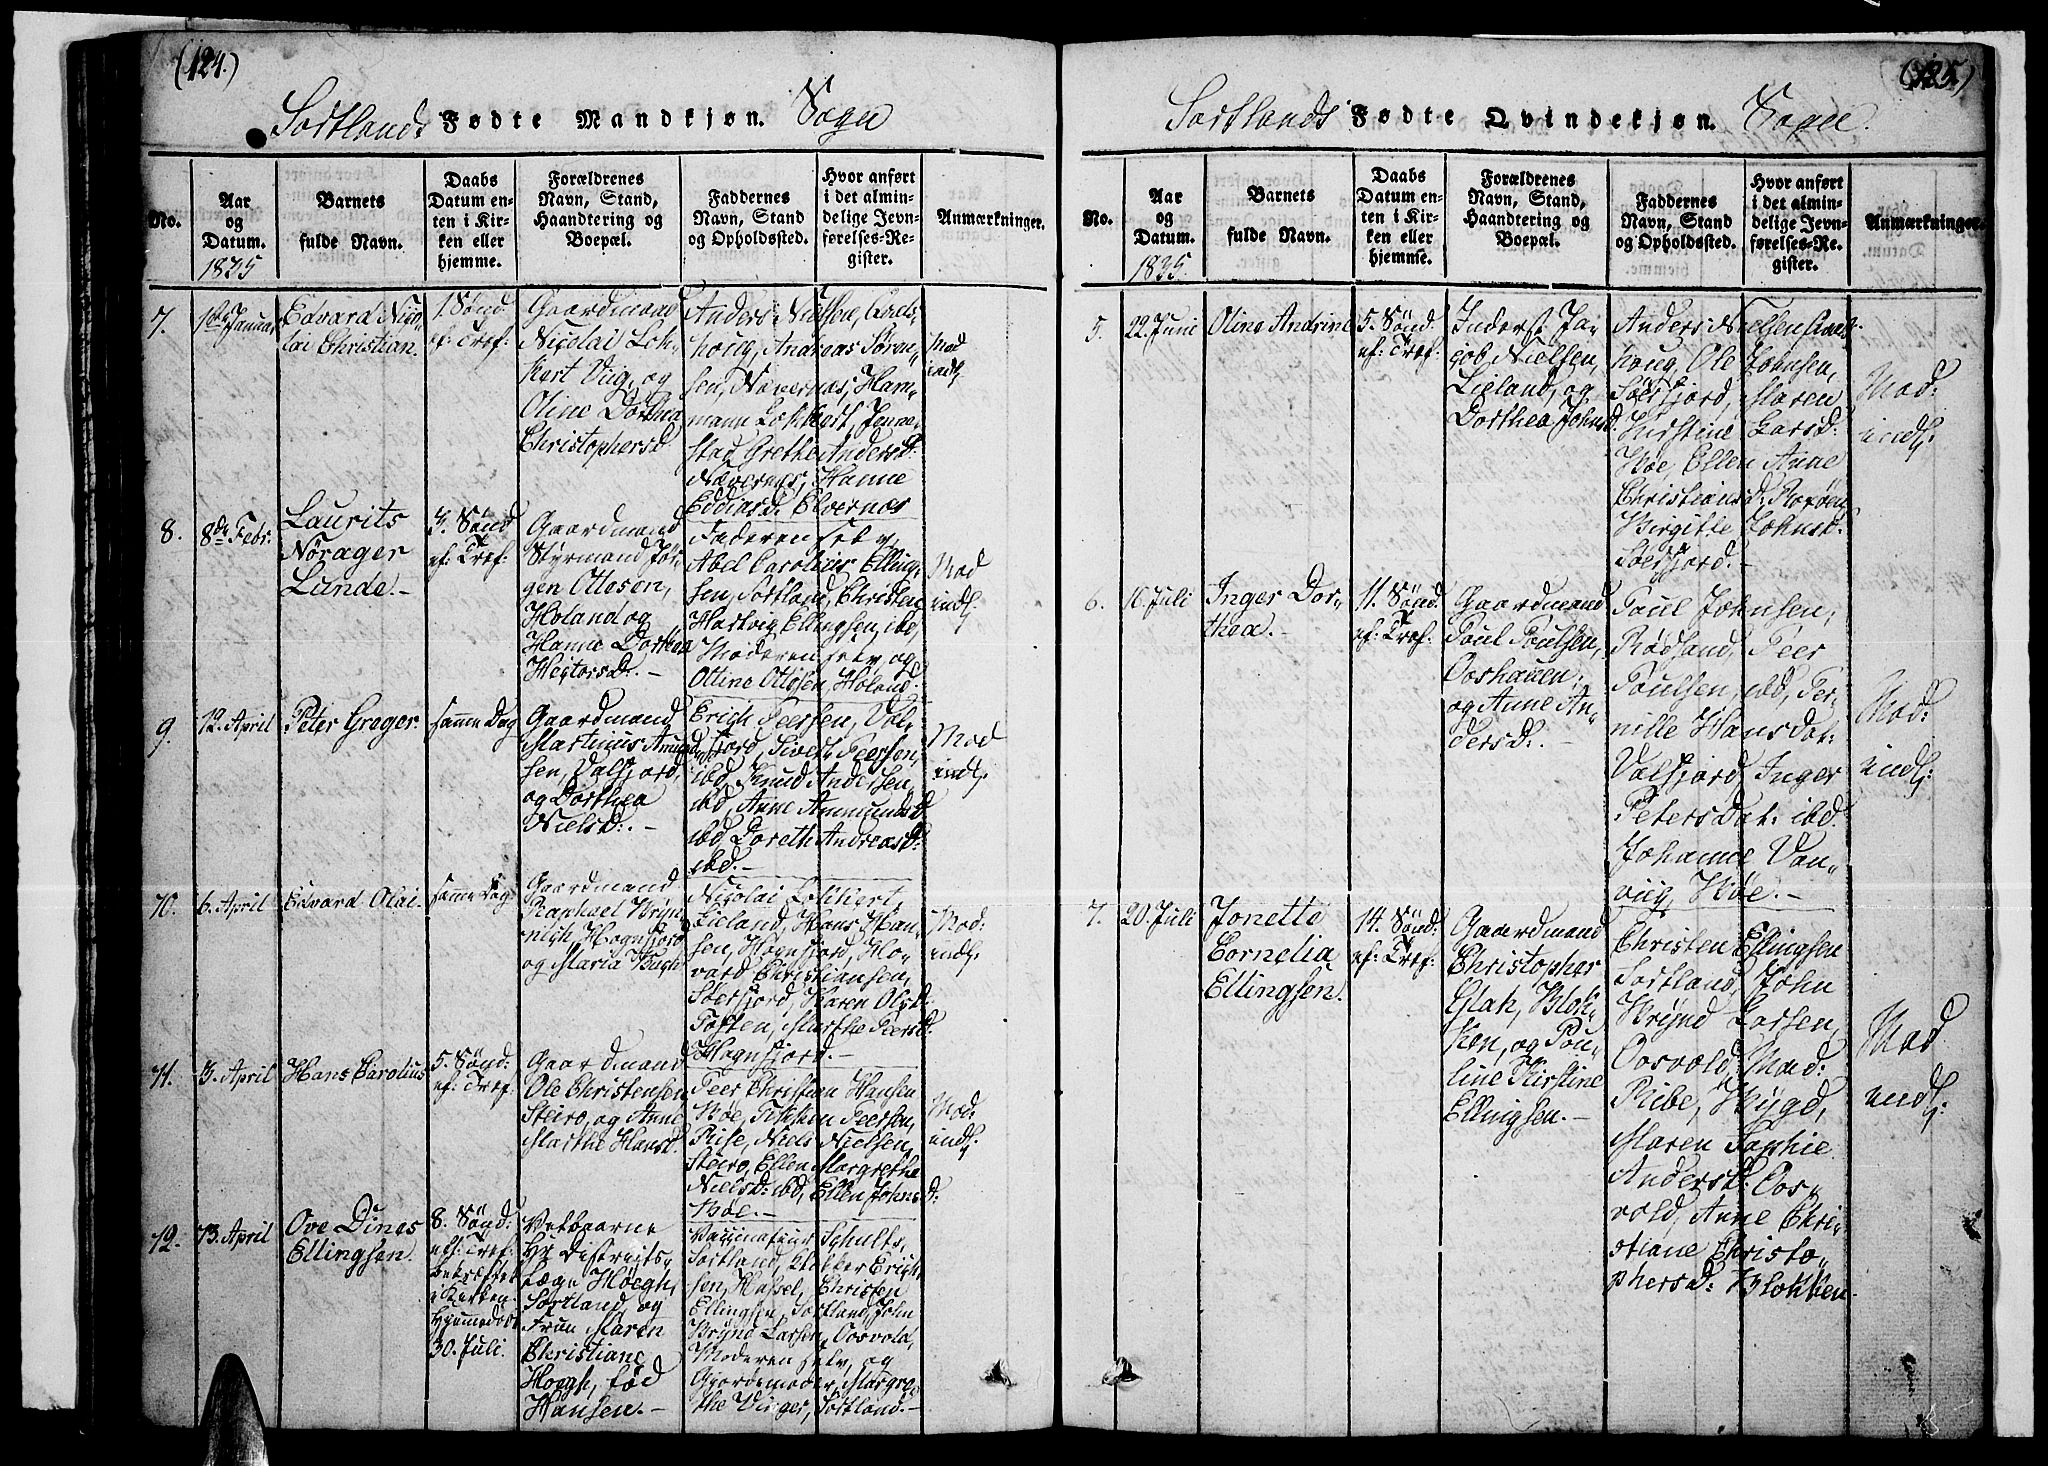 (124.)
Sortlands Fødte Mandkjøn. Sogn
No.
Aar
og
Datum.
1835
Barnets
fulde Navn.
Daabs
Datum en-
ten i Kir-
ken eller
hjemme.
Forældrenes
Navn, Stand,
Haandtering og
Boepæl.
Faddernes
Navn, Stand
og Opholdssted.
Hvor anført
i det almin-
delige Jevn-
førelses-Re-
gister.
Anmærkninger.
7.
1ste Januar
Edvard Nico-
lai Christian.
1. Sønd.
ef: Tref:
Gaardmand
Nicolai Loh-
kert Viig, og
Oline Dorthea
Christophersd
Anders Nielsen,
houg, Andreas Søren-
sen, Nævernæs, Har-
mann Lokkert, Jenne-
stad, Grethe Andersd:
Nævernæs, Hanne
Eddiasd. Elvernæs
Mod
indl.
8.
8de Febr.
Laurits
Nörager
Lunde.-
3. Sønd
ef: Tref:
Gaardmand
Styrmand Jør-
gen Ottosen,
Holand og
Hanne Dorthea
Hegtorsd:.-
Faderen selv,
Abel Carolius Elling-
sen, Sortland, Christen
Hartvig Ellingsen, ibd,
Moderen selv, og
Ottine Ottosen, Holand.
Mod
indl.
9.
12. April
Peter Greger.
samme Dag
Gaardmand
Martinus Amund-
sen, Valfjord,
og Dorthea
Nielsd:.-
Erich Peersen, Val-
fjord, Sivert Peersen,
ibd, Knud Andersen,
ibd, Anne Ammundsd
ibd Doreth Andreasd:
ibd.-
Mod
indl.
10.
6. April
Edvard Olai.
samme Dag
Gaardmand
Raphael Bryn-
nigh, Hognfjord
og Maria Bugh
Nicolai Lokkert,
Lieland, Hans Han-
sen, Hognfjord, Ho-
vard Christiansen,
Sørfjord, Karen Olsd:
Toften, Marthe Peersd:
Hognfjord.-
Mod:
indl.
11.
3. April
Hans Carolius
5. Sønd:
ef: Tref:
Gaardmand
Ole Christensen
Steiro, og Anne
Marthe Hansd.
Peer Christian Hansen
Bøe, Peersen,
Rise, Niels Nielsen,
Steiro, Ellen Margrethe
Nielsd: ibd, Ellen Johnsd:
Bøe.-
Mod:
indl.
12.
13. April
Ove Dines
Ellingsen.
8. Sønd:
ef: Tref:
bekræftet
i Kirken.
Hjemmedøbt
30. Juli.
Velbaarne
Hr Districts-
Læge Höegh,
Sortland, og
Frue Maren
Christiane
Hoegh, fød
Hansen.-
Vaccinateur Schults,
Sortland, Klokker Erich-
sen, Hassel, Christen
Ellingsen, Sortland, John
Brynd Larsen, Oosvold,
Moderen selv, og
Gjordemoder, Margre-
the Vinger, Sortland.-
(125)
Sortlands Fødte Qvindekjøn. Sogn.
No.
Aar
og
Datum.
1835.
Barnets
fulde Navn.
Daabs
Datum en-
ten i Kir-
ken eller
hjemme.
Forældrenes
Navn, Stand,
Haandtering og
Boepæl.
Faddernes
Navn, Stand
og Opholdssted.
Hvor anført
i det almin-
delige Jevn-
førelses-Re-
gister.
Anmærkninger.
5.
22. Juni
Oline Andrine
5. Sønd:
ef: Tref:
Inderst Ja-
cob Nielsen,
Lieland, og
Dorthea Johnsd:
Anders Nielsen
houg, Ole Johnsen,
Sørfjord, Maren
Kirstine Larsd:
Bøe, Ellen Anne
Christiansd:
Birgitte Johnsd:
Sørfjord.-
Mod:
indl:
6.
10. Juli
Inger Dor-
thea.-
11. Sønd:
ef: Tref:
Gaardmand
Poul Poulsen,
Ooshauen,
og Anne An-
dersd:.-
Poul Johnsen,
Rødsand, Peer
Poulsen, ibd, Per-
nille Hansdat:
Valfjord, Inger
Petersdat: ibd.
Johanne Von-
viig, Bøe.-
Mod:
indl:
7.
20. Juli
Jonette
Cornelia
Ellingsen.
14. Sønd:
ef: Tref:
Gaardmand
Christopher
Glak, Blok-
ken, og Pou-
line Kirstine
Ellingsen.-
Christen Ellingsen
Sortland, John
Brynd Larsen,
Oosvold, Mad:
Ribe, Bygd,
Maren Sophie
Andersd: Oos-
vold, Anne Chri-
stiane Christo-
phersd: Blokken.
Mod
indl: